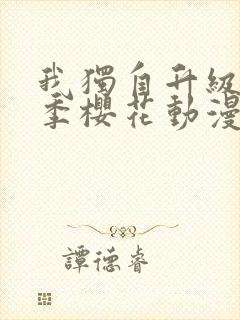 我獨自升級
季櫻花動漫
譚德睿